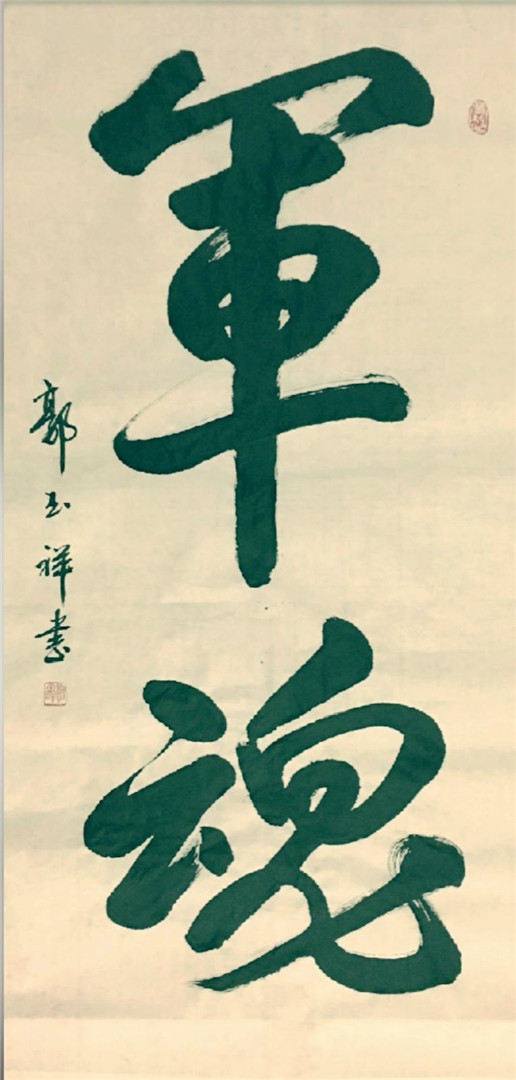 軍魂
郭玉祥書